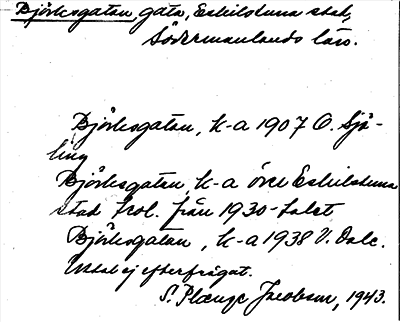 Björksgatan, gata, Eskilstuna stad,
Södermanlands län.
Björksgatan, k-a 1907 O. Sjö-
ling
Björksgatan, k-a över Eskilstuna
stad trol. från 1930-talet
Björksgatan, k-a 1938 V. Dalc.
Uttal ej efterfrågat.
S. Jacobson, 1943.